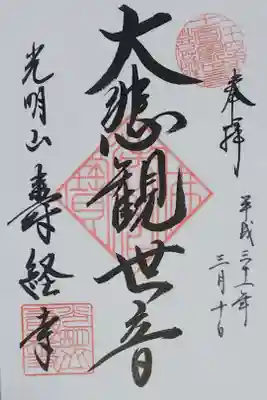 奉拝
平成三十一年
三月十日
大悲観世音
光明山
寿経寺